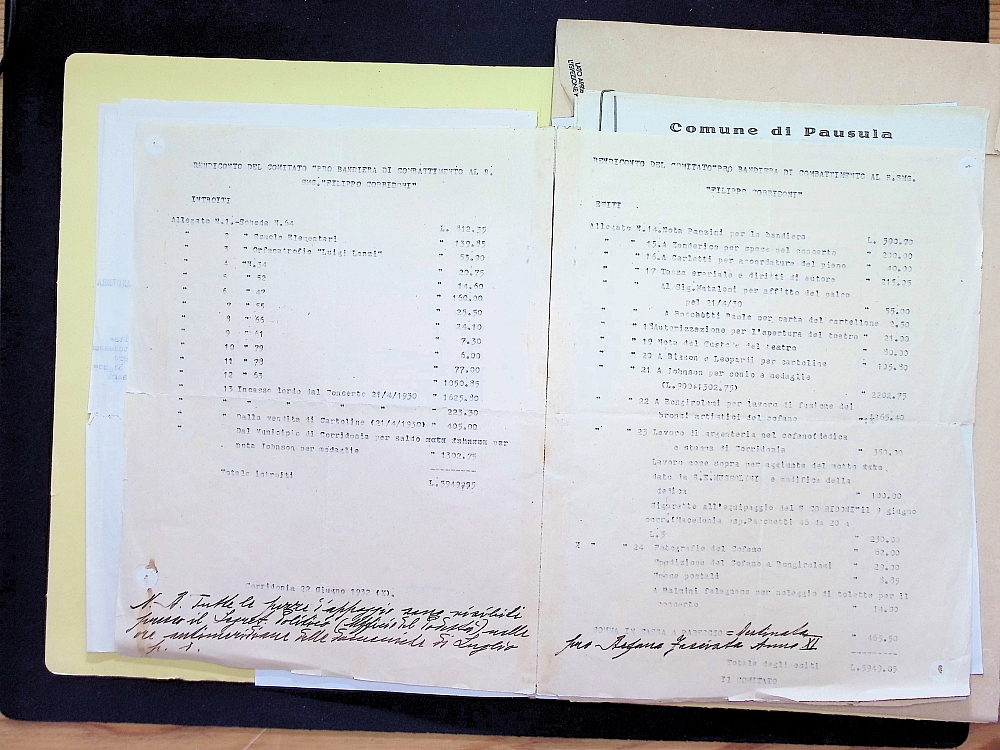 Comune di Pausula
RENDICONTO DEL COMITATO "PRO BANDIERA DI COMBATTIMENTO AL R.
SMG. "FILIPPO CORRIDONI"
INTROITI
Allegato N.1.-Scheda N.64 L. 812.35
" 2 " Scuole Elementari " 139.85
" 3 " Orfanotrofio "Luigi Lanzi" " 53.20
" 4 "N.34 " 22.75
" 5 " 52 " 14.60
" 6 " 47 " 160.00
" 7 " 55 " 28.50
" 8 " 66 " 24.10
" 9 " 61 " 7.30
" 10 " 79 " 6.00
" 11 " 78 " 77.00
" 12 " 63 " 1050.85
" 13 Incasso lordo dal Concerto 21/4/1930 " 1625.80
" " " " " " 223.30
" " Dalla vendita di Cartoline (21/4/1930) " 405.00
" Dal Municipio di Corridonia per saldo per
nota Johnson per medaglie " 1302.75
Totale introiti
L.5949.05
Corridonia 29 Giugno 1932 (X).
N. B. Tutte le pezze d'appoggio sono visibili
presso il Segret. Politico nelle
ore antimeridiane delle di Luglio
p. v.
RENDICONTO DEL COMITATO"PRO BANDIERA DI COMBATTIMENTO AL R.SMG.
"FILIPPO CORRIDONI"
ESITI
Allegato N.14.Nota Panzini per la bandiera L. 590.70
" " 15.A Zanderico per spese nel concerto " 200.00
" " 16.A Carletti per accordature del piano " 40.00
" " 17 Tassa erariale e diritti di autore " 218.05
Al Sig.Mataloni per affitto del palco
pel 21/4/30 " 55.00
A Bocchetti Paolo per carta del cartellone 2.50
" " 18 Autorizzazione per l'apertura del teatro " 21.00
" " 19 Nota del Custode del teatro " 80.00
" " 20 A Bisson e Leopardi per cartoline " 105.80
" " 21 A Johnson per conio e medaglie
(L.900+1302.75) " 2202.75
" " 22 A Rongiroloni per lavoro di fusione dei
bronzi artistici del cofano
" " 23 Lavoro di argenteria nel cofano(dedica
e stemma di Corridonia " 350.00
Lavoro come sopra per aggiunta del motto
dato da S.E.MUSSOLINI e modifica della
dedica " 100.00
Sigarette all'equipaggio del " CORRIDONI" il 9 giugno
corr.(Macedonia esp.Pacchetti 46 da 20 a
L.5 " 230.00
" " " 24 Fotografie del Cofano " 62.00
Spedizione del Cofano a Rongiroloni " 20.00
Spese postali " 8.85
A Malnini falegname per noleggio di salotto per il
concerto " 14.00
SOMMA IN CASSA A PAREGGIO = destinata " 463.50
pro Befana Fascista Anno XI
Totale degli esiti L.5949.05
Il COMITATO